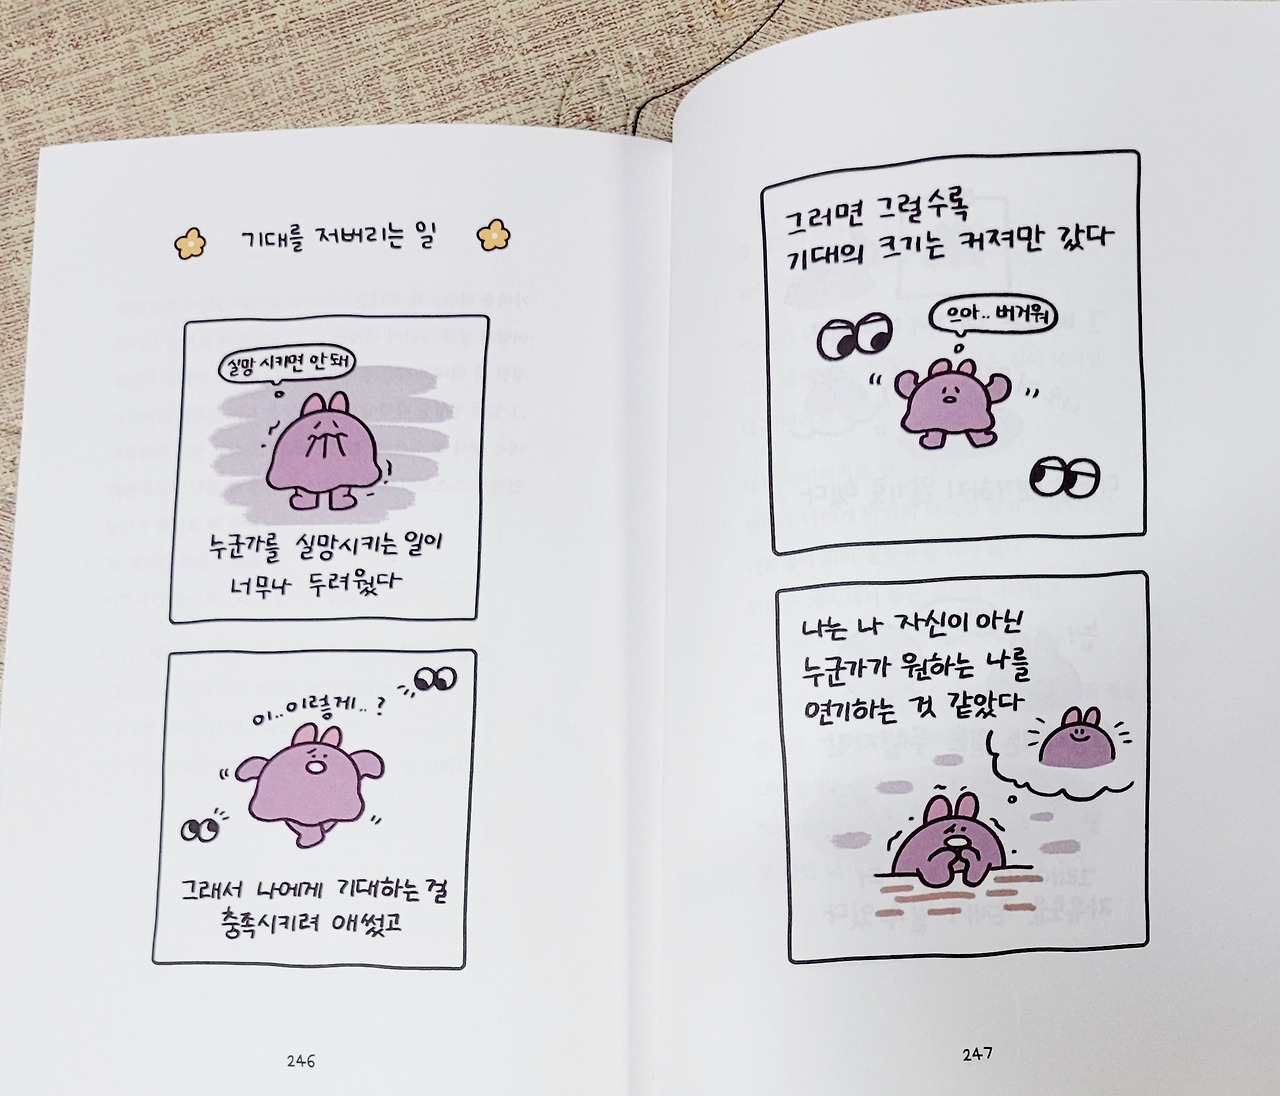 기대를 저버리는 일
실망 시키면 안 돼
누군가를 실망시키는 일이
너무나 두려웠다
이..이렇게..?
그래서 나에게 기대하는 걸
충족시키려 애썼고
246
그러면 그럴수록
기대의 크기는 커져만 갔다
으아.. 버거워
나는 나 자신이 아닌
누군가가 원하는 나를
연기하는 것 같았다
247